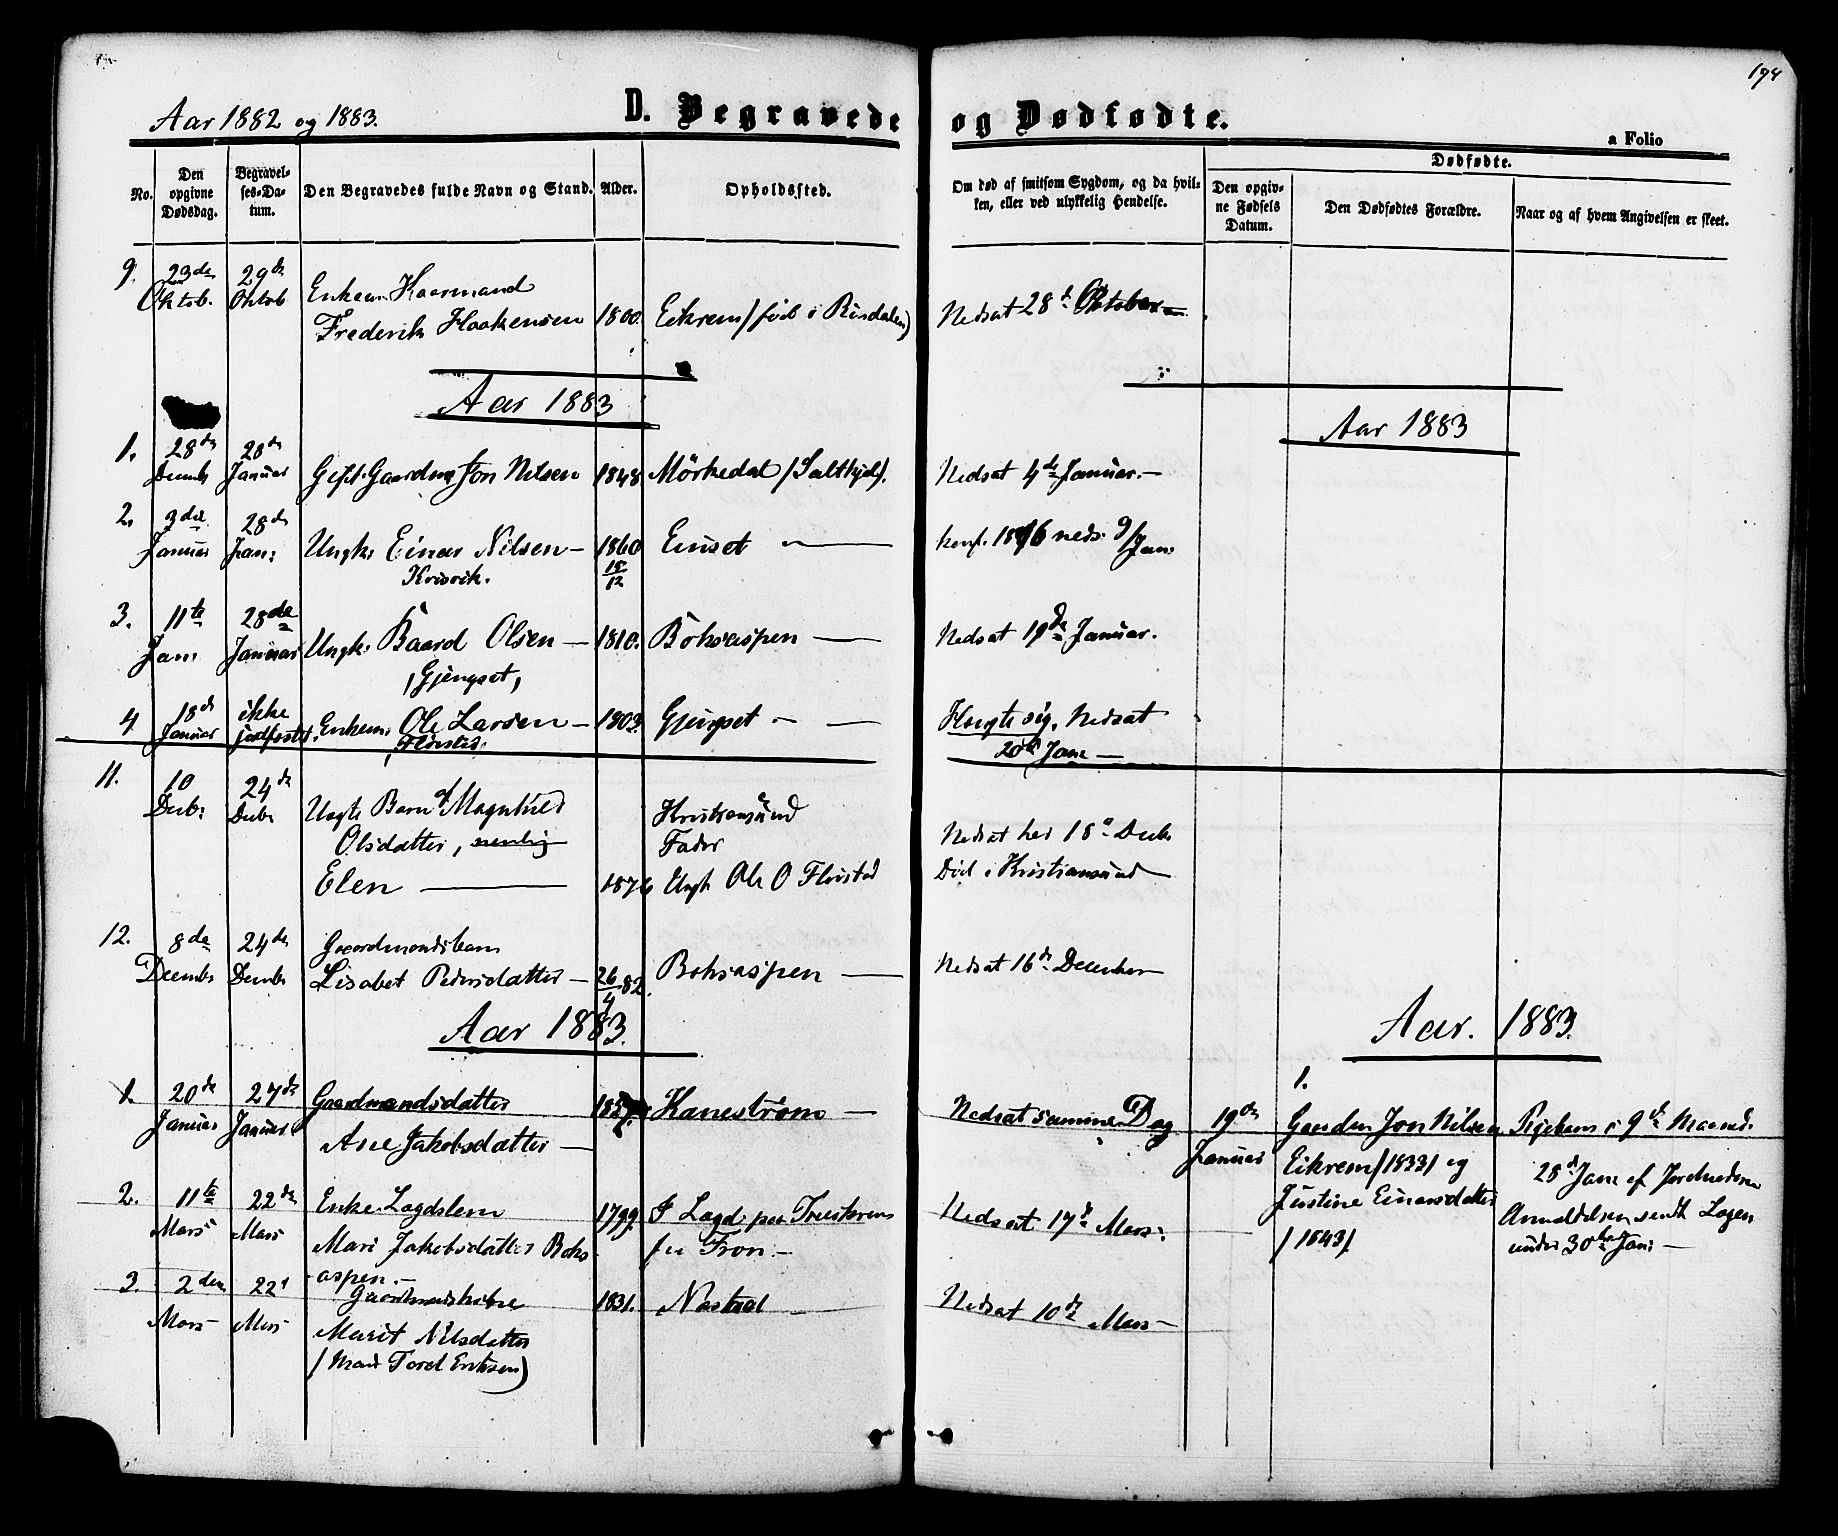 194
Aar 1882 og 1883.
D. Begravede og Dødfødte.
a Folio
No.
Den opgivne Dødsdag.
Begravelses-Datum.
Den Begravedes fulde Navn og Stand.
Alder.
Opholdssted.
Om død af smitsom Sygdom, og da hvilken, eller ved ulykkelig Hendelse.
Dødfødte.
Den opgivne Fødsels Datum.
Den Dødfødtes Forældre.
Naar og af hvem Angivelsen er skeet.
9. 23de 29de Enkem. Kaarmand
Oktob. Oktob Frederik Haakensen 1800. Eikrem (föd i Rindalen) Nedsat 28d Oktober
Aar 1883
Aar 1883
1. 28de 28de
Decemb Januar Gift. Gaardm Jon Nilsen 1848 Mörkedal (Salthjel). Nedsat 4de Januar.
2. 3die 28de
Januar Jan: Ungk: Einar Nilsen 1860 Einset konf. 1876 neds: 9/ Jan:
Krisvik. 15/12
3. 11te 28de
Jan: Januar Ungk: Baard Olsen 1810. Boksaspen Nedsat 19de Januar.
(Gjengset)
4 18de ikke
Januar jordfæstet Enkem: Ole Larsen 1803. Gjengset Hengte sig. Nedsat
Flörstad. 20de Jan:
11. 10 24de
Decb: Decb: Ungk Barn af Magnhild Kristiansund
Olsdatter, nemlig Fader Nedsat her 18de Decb.
Elen 1876 Ungk Ole O Flöistad Död i Kristiansund
12. 8de 24de Gaardmandsbarn
Decemb Decemb Lisabet Pedersdatter 26/4 82. Boksaspen Nedsat 16de December
Aar 1883.
Aar. 1883.
1.
1. 20de 27de Gaardmandsdatter Kaneström Nedsat samme Dag 19de Gaardm Jon Nilsen Pigebarn i 9de Maaned.
Januar Januar Ane Jakobsdatter Januar Eikrem (1833) og 28d Jan: af Jordmoderen
2. 11te 22de Enke Lægdslem 1799. I Lægd: paa Tresteren Nedsat 17d Mars. Justine Einarsdatter Anmeldelsen sendt Lagen
Mars Mars Mari Jakobsdatter Boks- Fron. (1843). under 30te Jan:
aspen.
3. 2den 22d Gaardmandskone 1831. Nastad Nedsat 10de Mars
Mars Mars Marit Nilsdatter
(Mand Tord Eriksen)